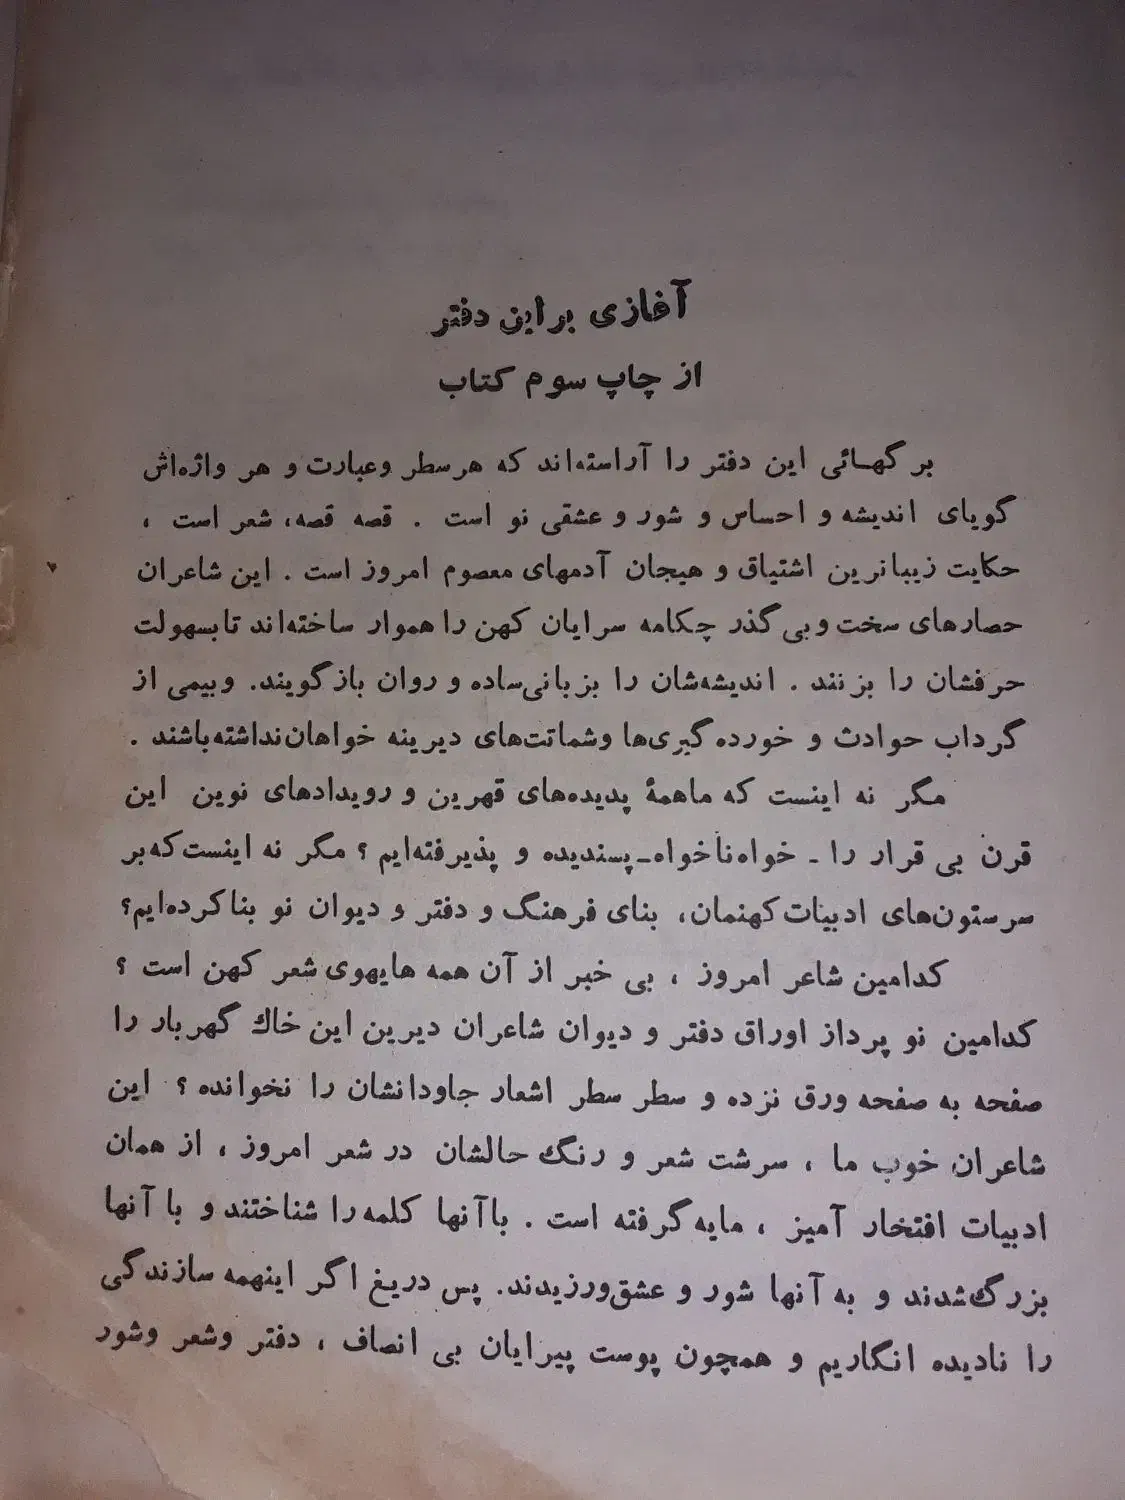 آغازی براین دفتر
از چاپ سوم کتاب
برگهائی این دفتر را آراسته‌اند که هرسطر وعبارت و هر واژه‌اش
گویای اندیشه و احساس و شور و عشقی نو است . قصه قصه، شعر است ،
حکایت زیباترین اشتیاق و هیجان آدمهای معصوم امروز است . این شاعران
حصارهای سخت وبی گذر چکامه سرایان کهن را هموار ساخته‌اند تابسهولت
حرفشان را بزنند . اندیشه‌شان را بزبانی‌ساده و روان بازگویند. وبیمی از
گرداب حوادث و خورده گیری‌ها وشماتت‌های دیرینه خواهان‌نداشته‌باشند .
مگر نه اینست که ماهمهٔ پدیده‌های قهرین و رویدادهای نوین این
قرن بی قرار را ـ خواه‌ناخواه‌ـ‌پسندیده و پذیرفته‌ایم ؟ مگر نه اینست‌که‌بر
سرستون‌های ادبیات‌کهنمان، بنای فرهنگ و دفتر و دیوان نو بناکرده‌ایم؟
کدامین شاعر امروز ، بی خبر از آن همه هایهوی شعر کهن است ؟
کدامین نو پرداز اوراق دفتر و دیوان شاعران دیرین این خاك گهربار را
صفحه به صفحه ورق نزده و سطر سطر اشعار جاودانشان را نخوانده ؟ این
شاعران خوب ما ، سرشت شعر و رنگ حالشان در شعر امروز ، از همان
ادبیات افتخار آمیز ، مایه گرفته است . باآنها کلمه را شناختند و با آنها
بزرگ‌شدند و به آنها شور و عشق‌ورزیدند. پس دریغ اگر اینهمه سازندگی
را نادیده انگاریم و همچون پوست پیرایان بی انصاف ، دفتر وشعر وشور